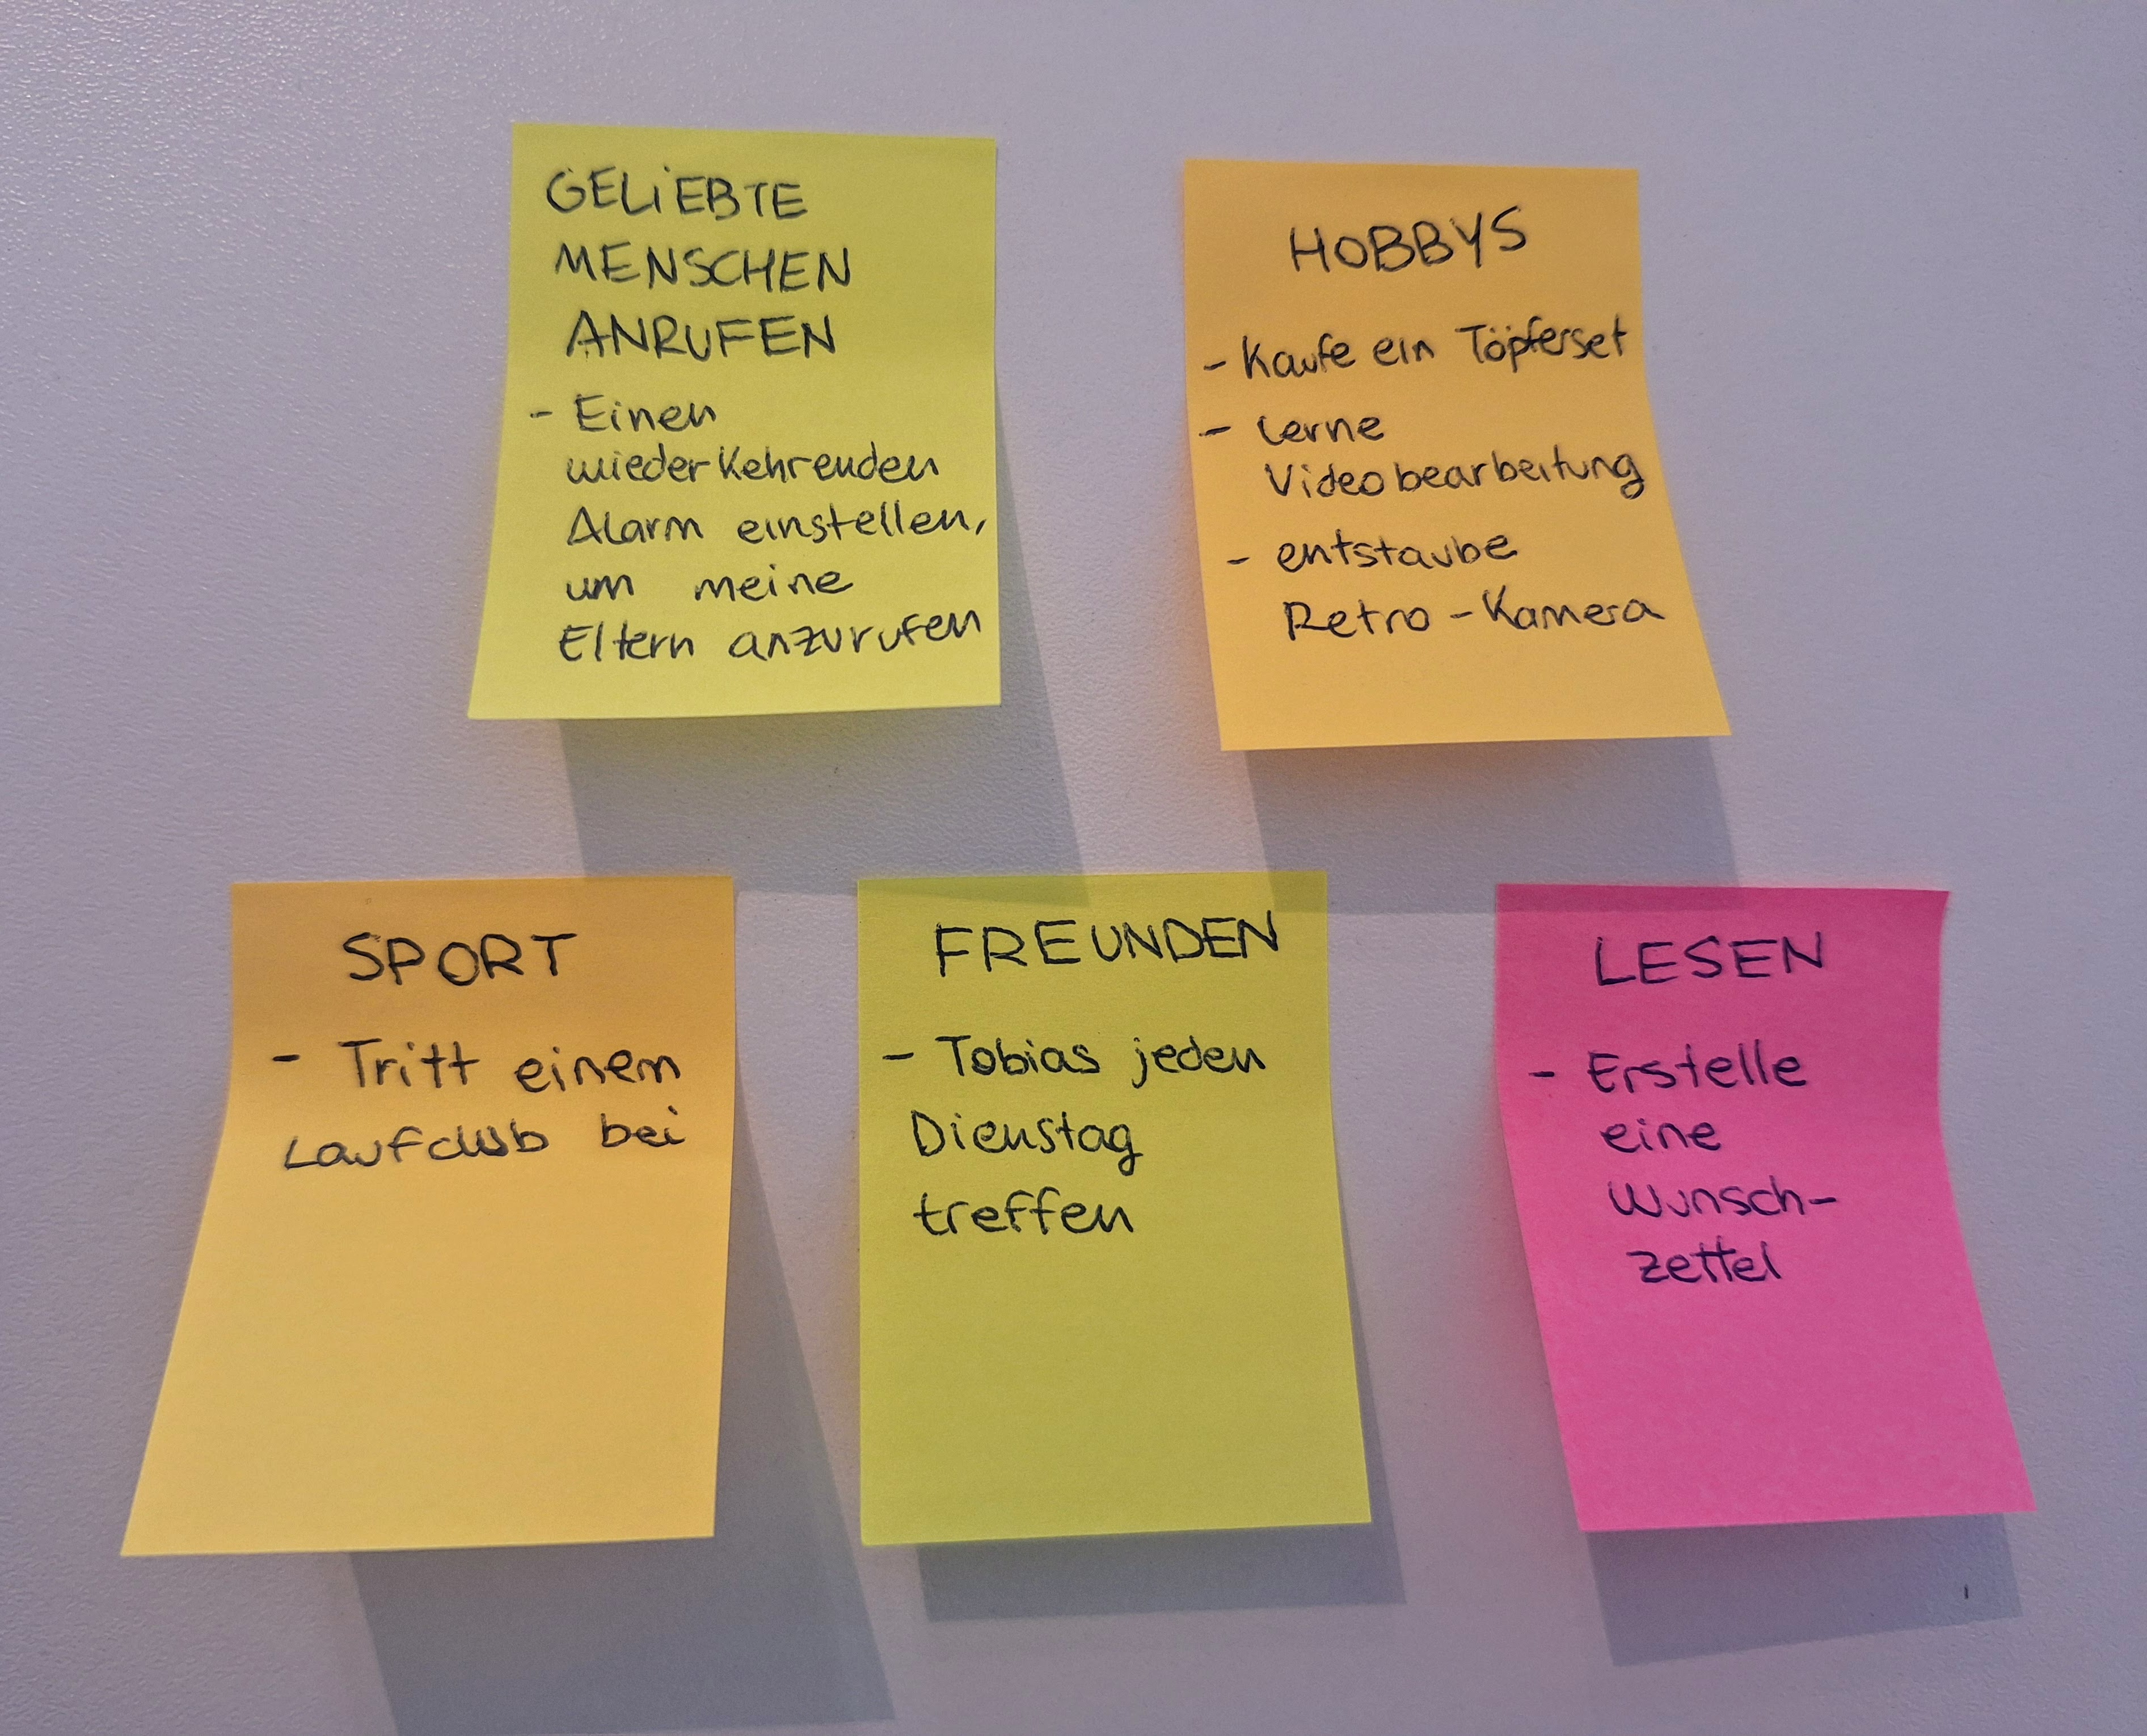 GELIEBTE
MENSCHEN
ANRUFEN
- Einen
wiederkehrenden
Alarm einstellen,
um meine
Eltern anzurufen
HOBBYS
- Kaufe ein Töpferset
- Lerne
Videobearbeitung
- entstaube
Retro-Kamera
SPORT
- Tritt einem
Laufclub bei
FREUNDEN
- Tobias jeden
Dienstag
treffen
LESEN
- Erstelle
eine
Wunsch-
zettel